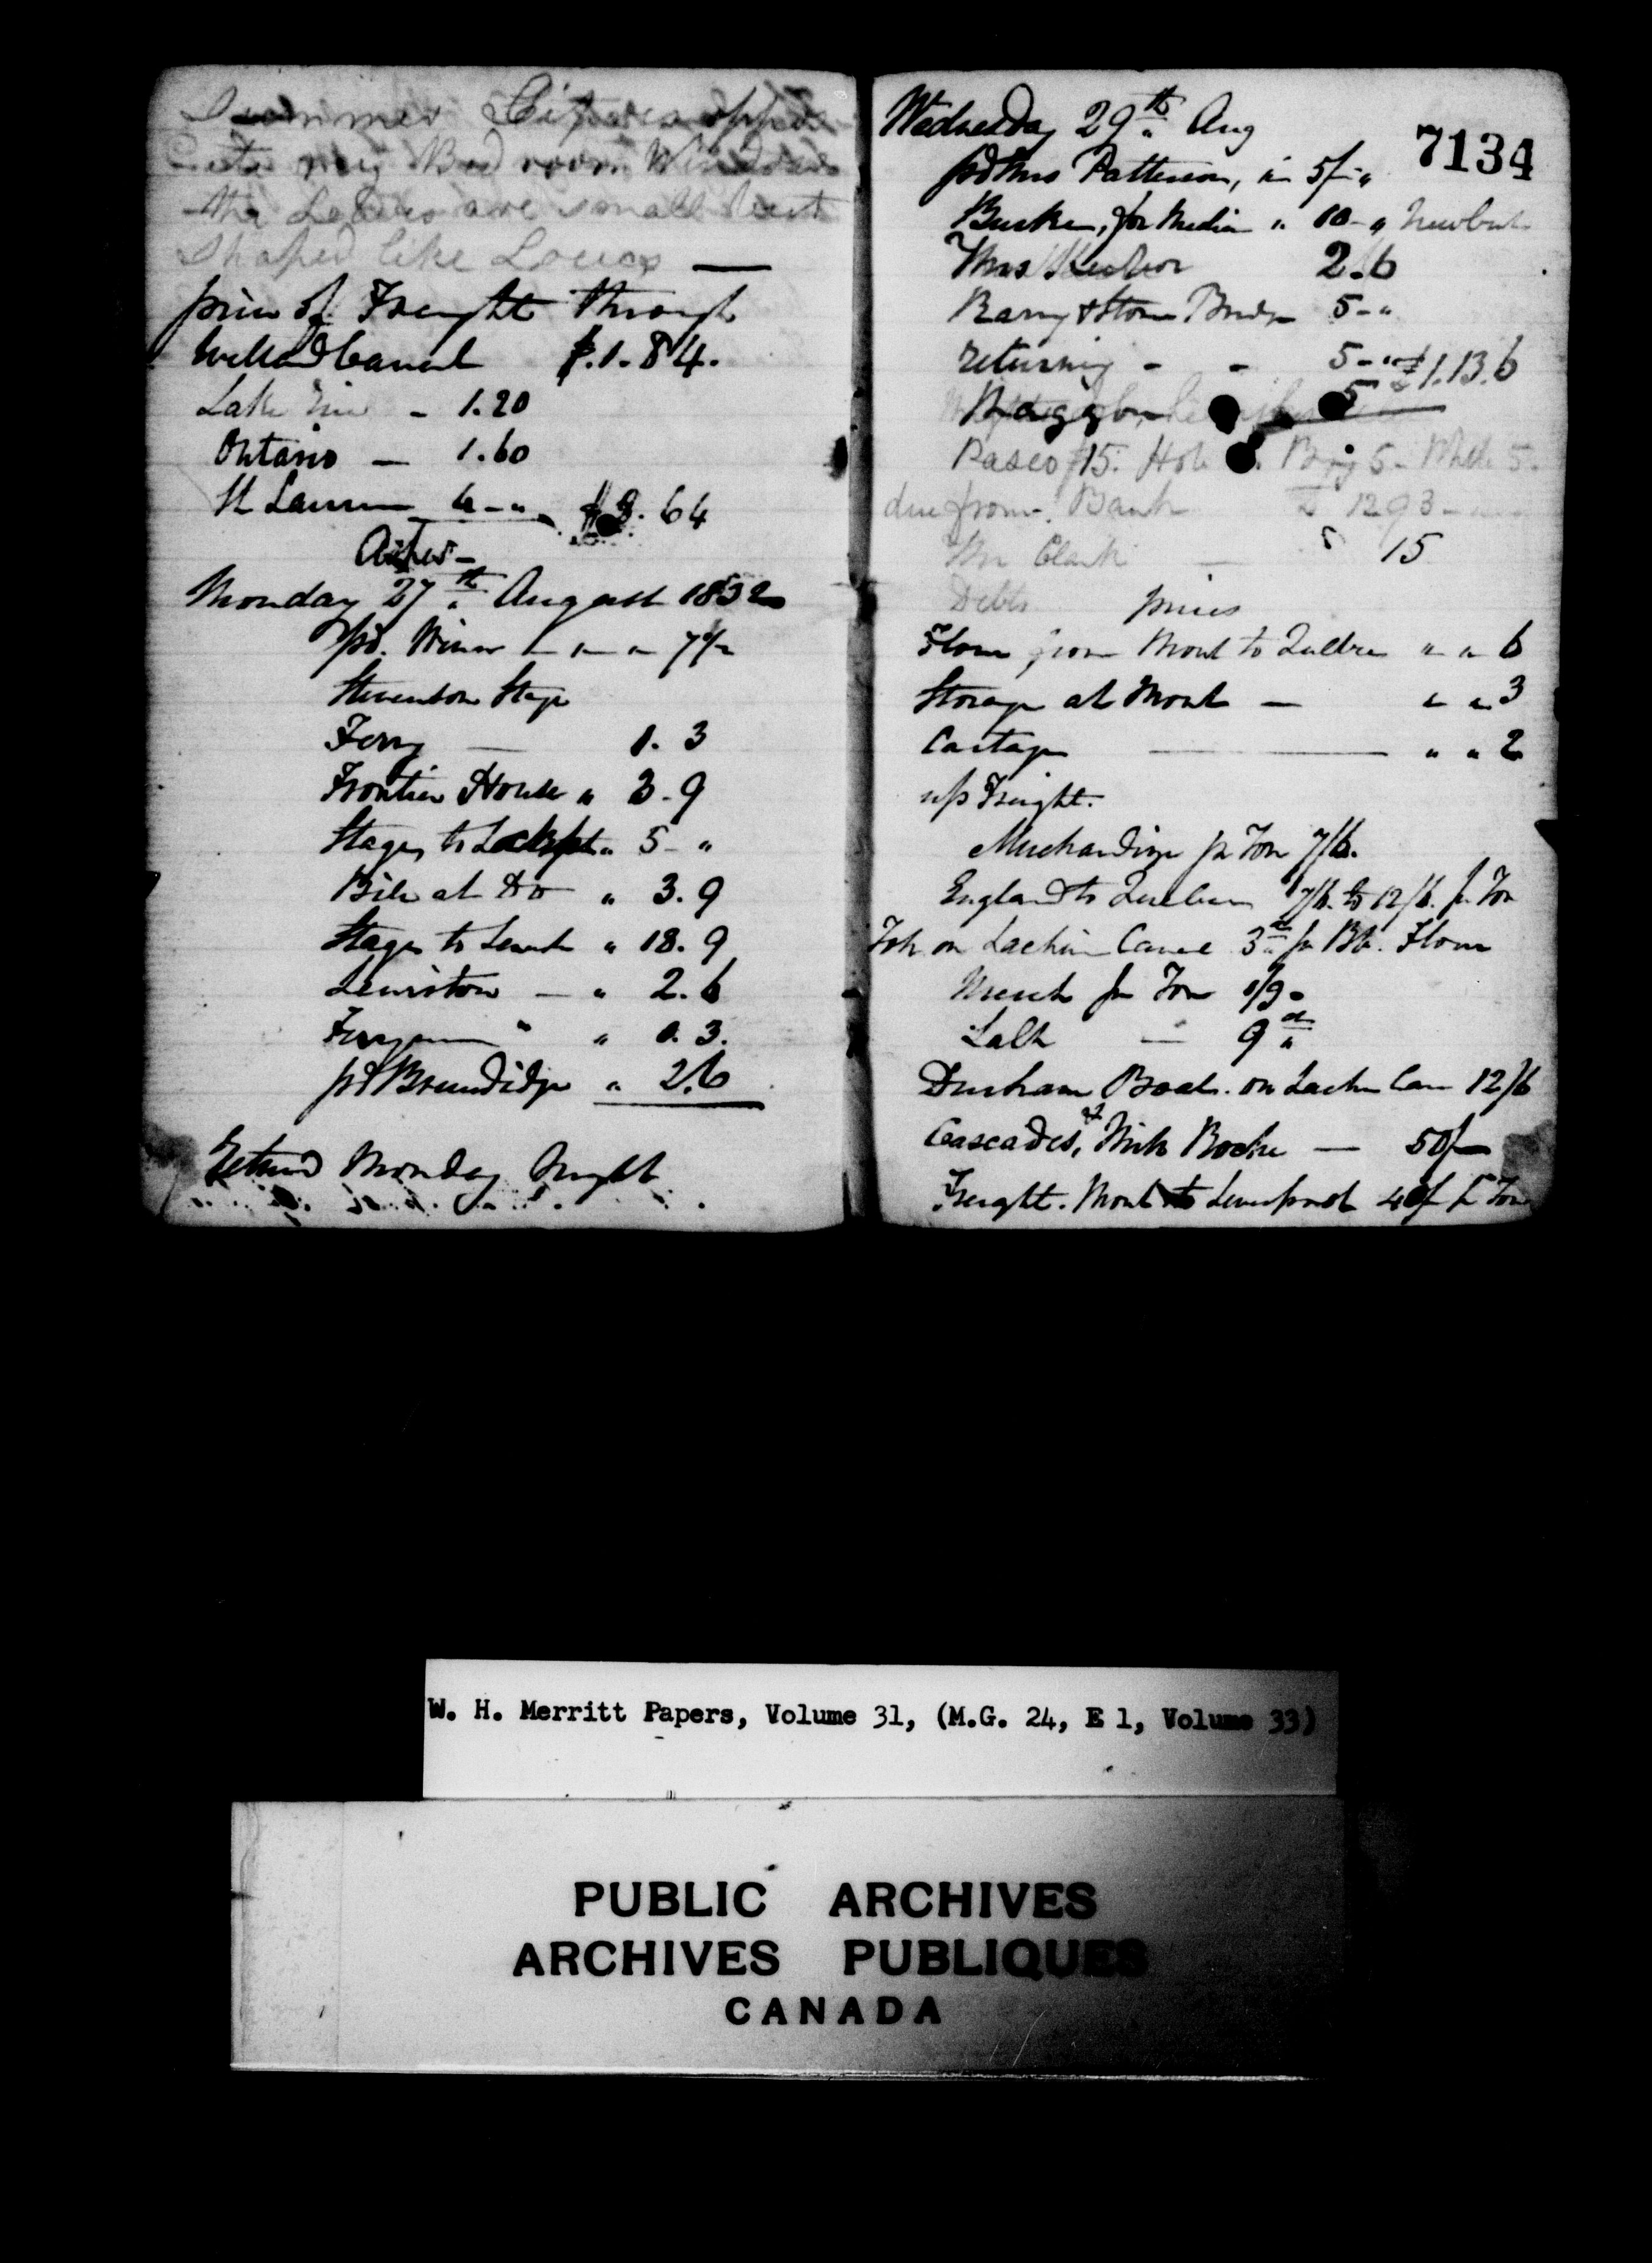 Summer
my Bed room Window
the are small
shaped like
price of Freight through
Welland Canal $.1.84.
Lake Erie - 1.20
Ontario - 1.60
St Lawrn 4 - " $8.64
Ashes -
Monday 27th August 1832
pd.
Stevenson Stage
Ferry — 1. 3
Frontier House " 3. 9
Stages to Lockpt " 5 - "
Bill at do " 3. 9
Stages to " 18. 9
Lewiston — " 2. 6
" " 1. 3.
pd Brundidge " 2.6
Returnd Monday Night
Wednesday 29th Aug
7134
pd Mrs Patterson, in 5/- "
Burke, for " 10 - "
Thos 2.6
Barry & Stone Bridge 5 - "
returning - - 5 - " £1.13.6
5
15.
due from Bank 1293
Mr Clark — 15
Debts prices
Flour from Mont to Quebec " " 6
Storage at Mont — " " 3
Cartage — " " 2
up Freight.
Merchandize pr Ton 7/6.
England to Quebec 7/6. to 12/6. pr Ton
Tolls on Lachine Canal 3d pr Bbl. Flour
Merch pr Ton 1/9 -
Salt — 9d
Durham Boats. on Lachn Can 12/6
Cascades, — 50/-
Freight. Mont to Liverpool 40/ pr Ton
W. H. Merritt Papers, Volume 31, (M.G. 24, E 1, Volume 33)
PUBLIC ARCHIVES
ARCHIVES PUBLIQUES
CANADA